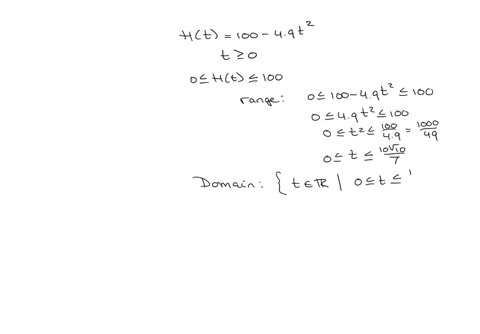 H(t) = 100 - 4.9t²
t ≥ 0
0 ≤ H(t) ≤ 100
range: 0 ≤ 100 - 4.9t² ≤ 100
0 ≤ 4.9t² ≤ 100
0 ≤ t² ≤ 100/4.9 = 1000/49
0 ≤ t ≤ 10√10/7
Domain: { t ∈ ℝ | 0 ≤ t ≤